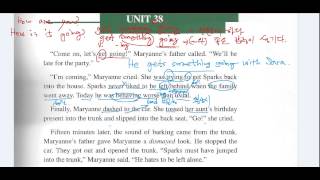 How are you?
How is it going?
UNIT 38
gets something going
-ing
He gets something going with Sara.
"Come on, let's get going!" Maryanne's father called. "We'll be
late for the party."
"I'm coming," Maryanne cried. She was trying to get Sparks back
into the house. Sparks never liked to be left behind when the family
went away. Today he was behaving worse than usual.
Finally, Maryanne dashed to the car. She tossed her aunt's birthday
present into the trunk and slipped into the back seat. "Go!" she cried.
Fifteen minutes later, the sound of barking came from the trunk.
Maryanne's father gave Maryanne a dismayed look. He stopped the
car. They got out and opened the trunk, "Sparks must have jumped
into the trunk," Maryanne said. "He hates to be left alone."